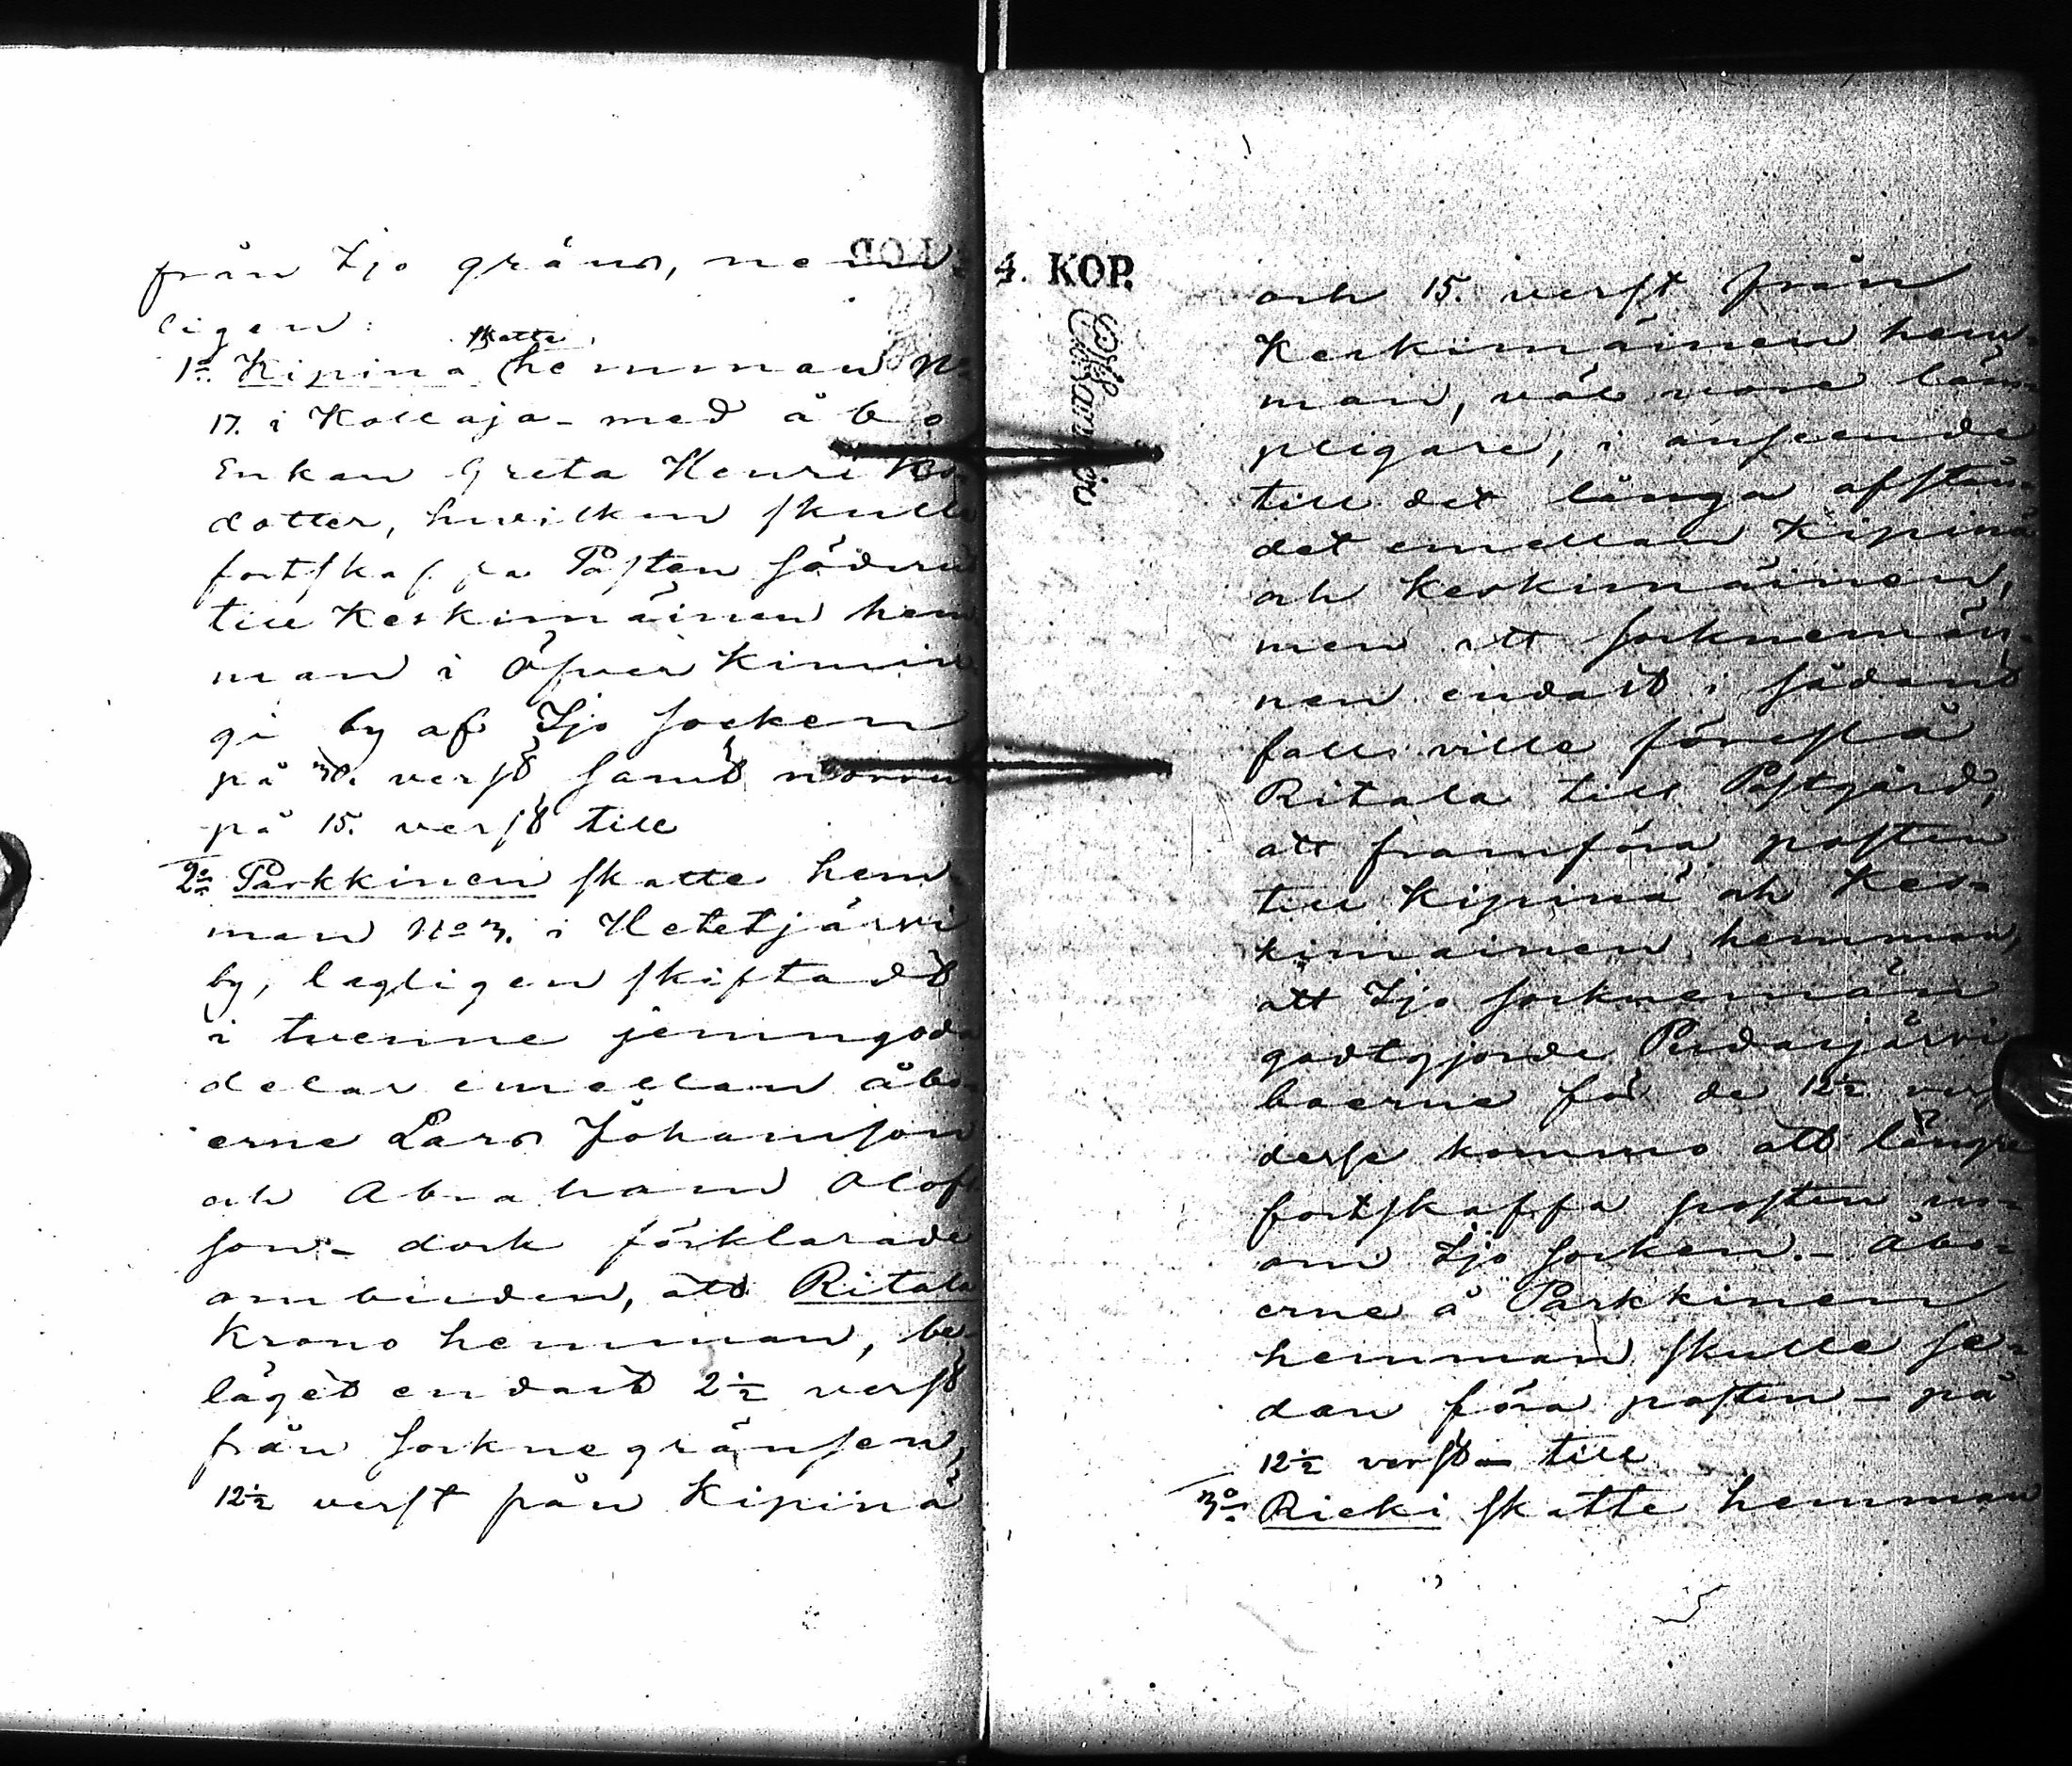 från Ijo gräns, nem¬
ligen:
skatte
1o Kipina hemman No
17. i Kollaja - med åbo
Enkan Greta Henriks¬
dotter, hvilken skulle
fortskaffa Posten söderut
till Keskimäinen hem
man i Öfver Kimin
gi by af Ijo Socken
på 30. verst samt norrut
på 15. verst till
2o Parkkinen skatte hem¬
man No 3. i Hetetjärvi
by, lagligen skiftadt
i tvenne jemngoda
delar emellan åbo¬
erne Lars Johansson
och Abraham Olofs
son - dock förklarade
ombuden, att Ritala
Krono hemman, be¬
läget endast 2½ verst
från Socknegränsen,
12½ verst från Kipinä
4. KOP.
och 15. verst från
Keskimäinen hem¬
man, väl vore läm¬
pligare, i anseende
till det långa afstån¬
det emellan Kipinä
och Keskimäinen,
men att Socknemän¬
nen endast i sådant
fall ville föreslå
Ritala till Postgård,
att framföra posten
till Kipinä och Kes¬
kimäinen hemman,
att Ijo Socknemän
godtgjorde Pudasjärvi
boerne för de 12½ verst
desse kommo att längre
fortskaffa posten in¬
om Ijo Socken. - Åbo¬
erne å Parkkinen
hemman skulle se¬
dan föra posten - på
12½ verst - till
3o Rieki skatte hemman